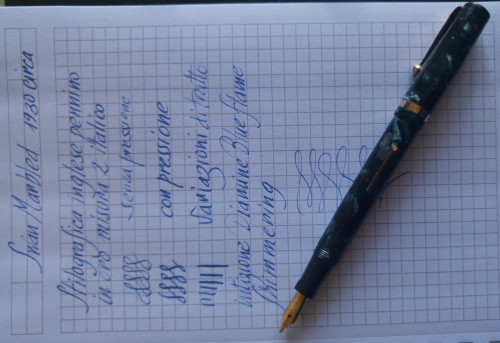 Swan Marbled 1930 circa
Stilografica inglese pennino
in oro misura 2 italico
senza pressione
con pressione
variazioni di tratto
intizione Diamine Blue Flame
Shimmering